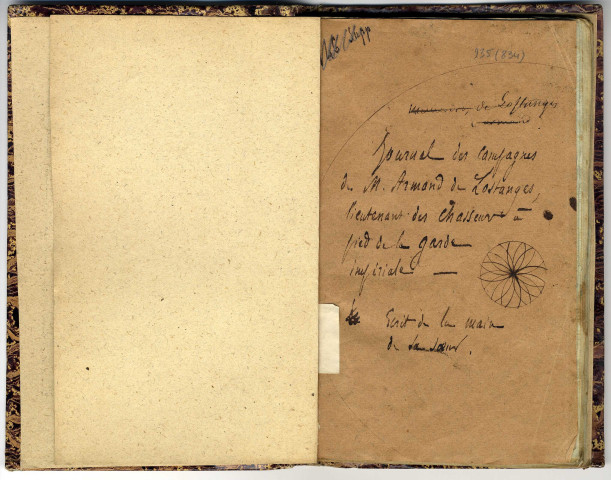 935 (834)
de Lostanges
Journal des Campagnes
de M. Armand de Lostanges,
lieutenant des chasseurs à
pied de la garde
impériale —
Ecrit de la main
de sa sœur.